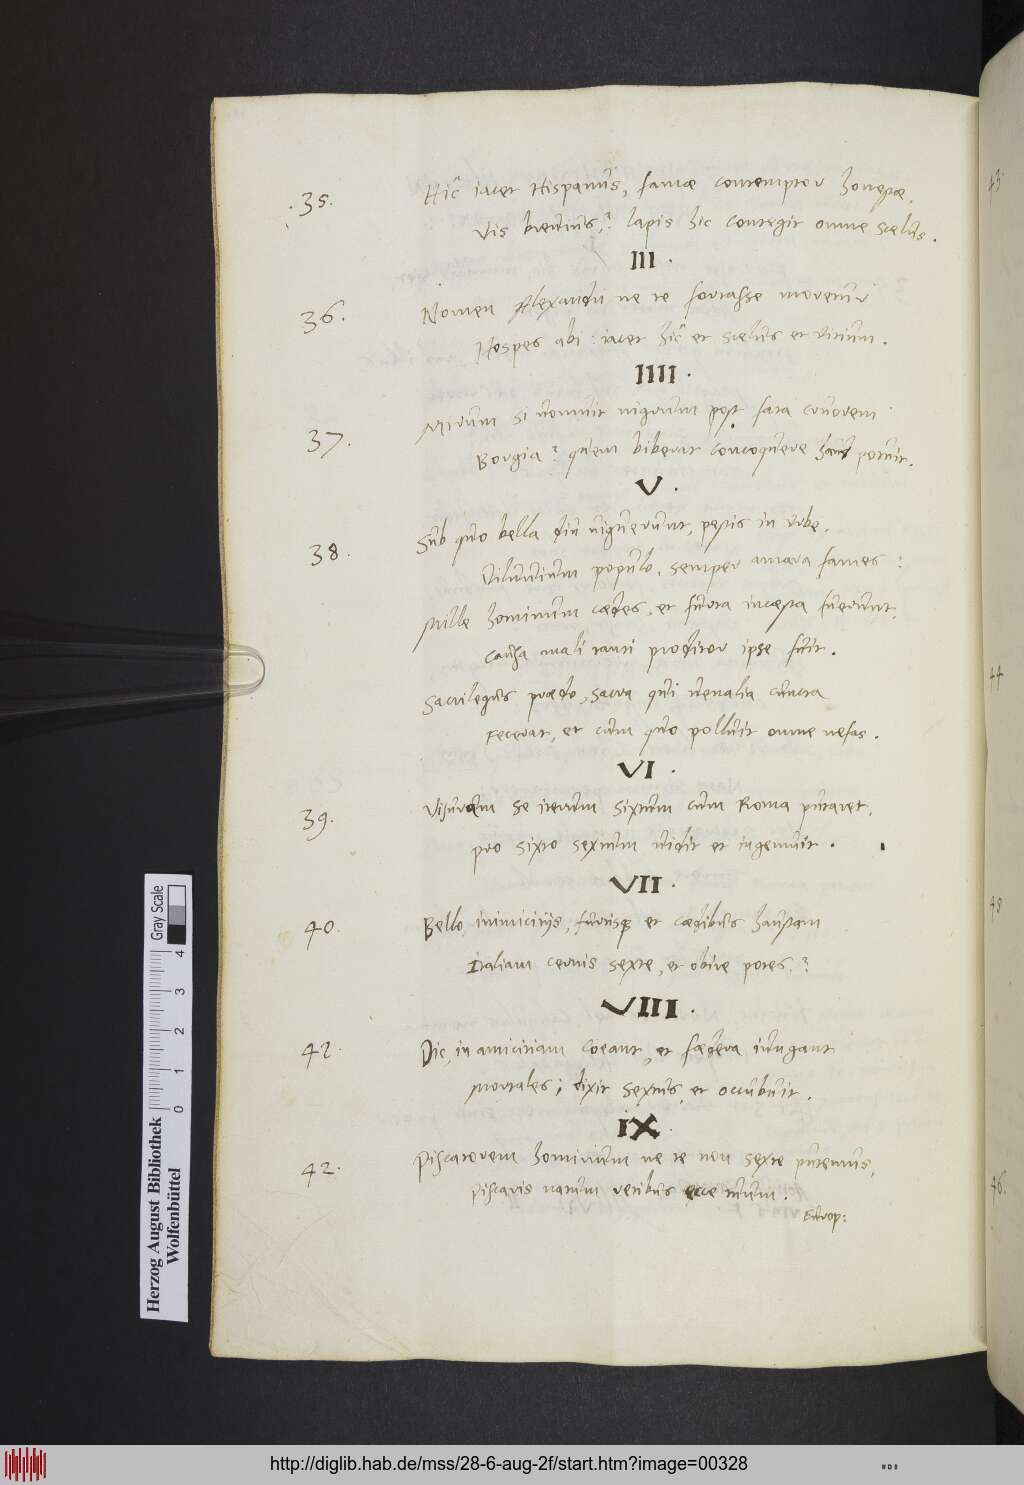 .35. Hic iacet Hispanus, famæ contemptor honestæ.
Vis breuius? lapis hic contegit omne scelus.
III.
36. Nomen Alexandri ne te fortasse moretur
Hospes abi: iacet hic et scelus et vitium.
IIII.
37. Mirum si uomuit nigrum post fata cruorem
Borgia? quem biberat concoquere haud potuit.
V.
38. Sub quo bella diu uiguerunt, pestis in vrbe.
Diluuium populo, semper amara fames:
Mille hominum cædes, et furta incesta fuerunt,
Causa mali tanti proditor ipse fuit.
Sacrilegus prædo, sacra qui uenalia cuncta
Fecerat, et cum quo polluit omne nefas.
VI.
39. Visuram se iterum Sixtum cum Roma putaret,
pro Sixto Sextum uidit et ingemuit.
VII.
40. Bello, inimicitijs, furtisque et cædibus haustam
Italiam cernis sexte, et obire potes?
VIII.
41. Dic, in amicitiam coeant, et fædera iungant
Mortales; dixit Sextus, et occubuit.
IX.
42. Piscatorem hominum ne te non sexte putemus,
Piscaris natum retibus ecce tuum.
Eutrop:
43
44
45
46.
Herzog August Bibliothek
Wolfenbüttel
Gray Scale
0 1 2 3 4
http://diglib.hab.de/mss/28-6-aug-2f/start.htm?image=00328